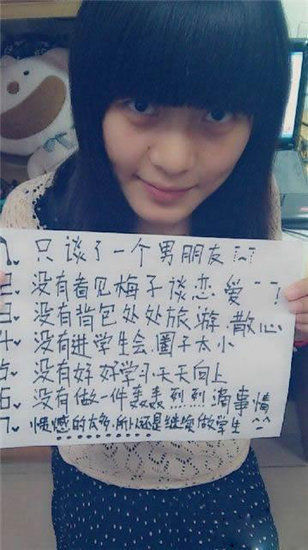 1、只谈了一个男朋友
二、没有看见梅子谈恋爱
三、没有背包处处旅游、散心
4、没有进学生会、圈子太小
5、没有好好学习、天天向上
6、没有做一件轰轰烈烈滴事情
7、遗憾的太多、所以还是继续做学生^^